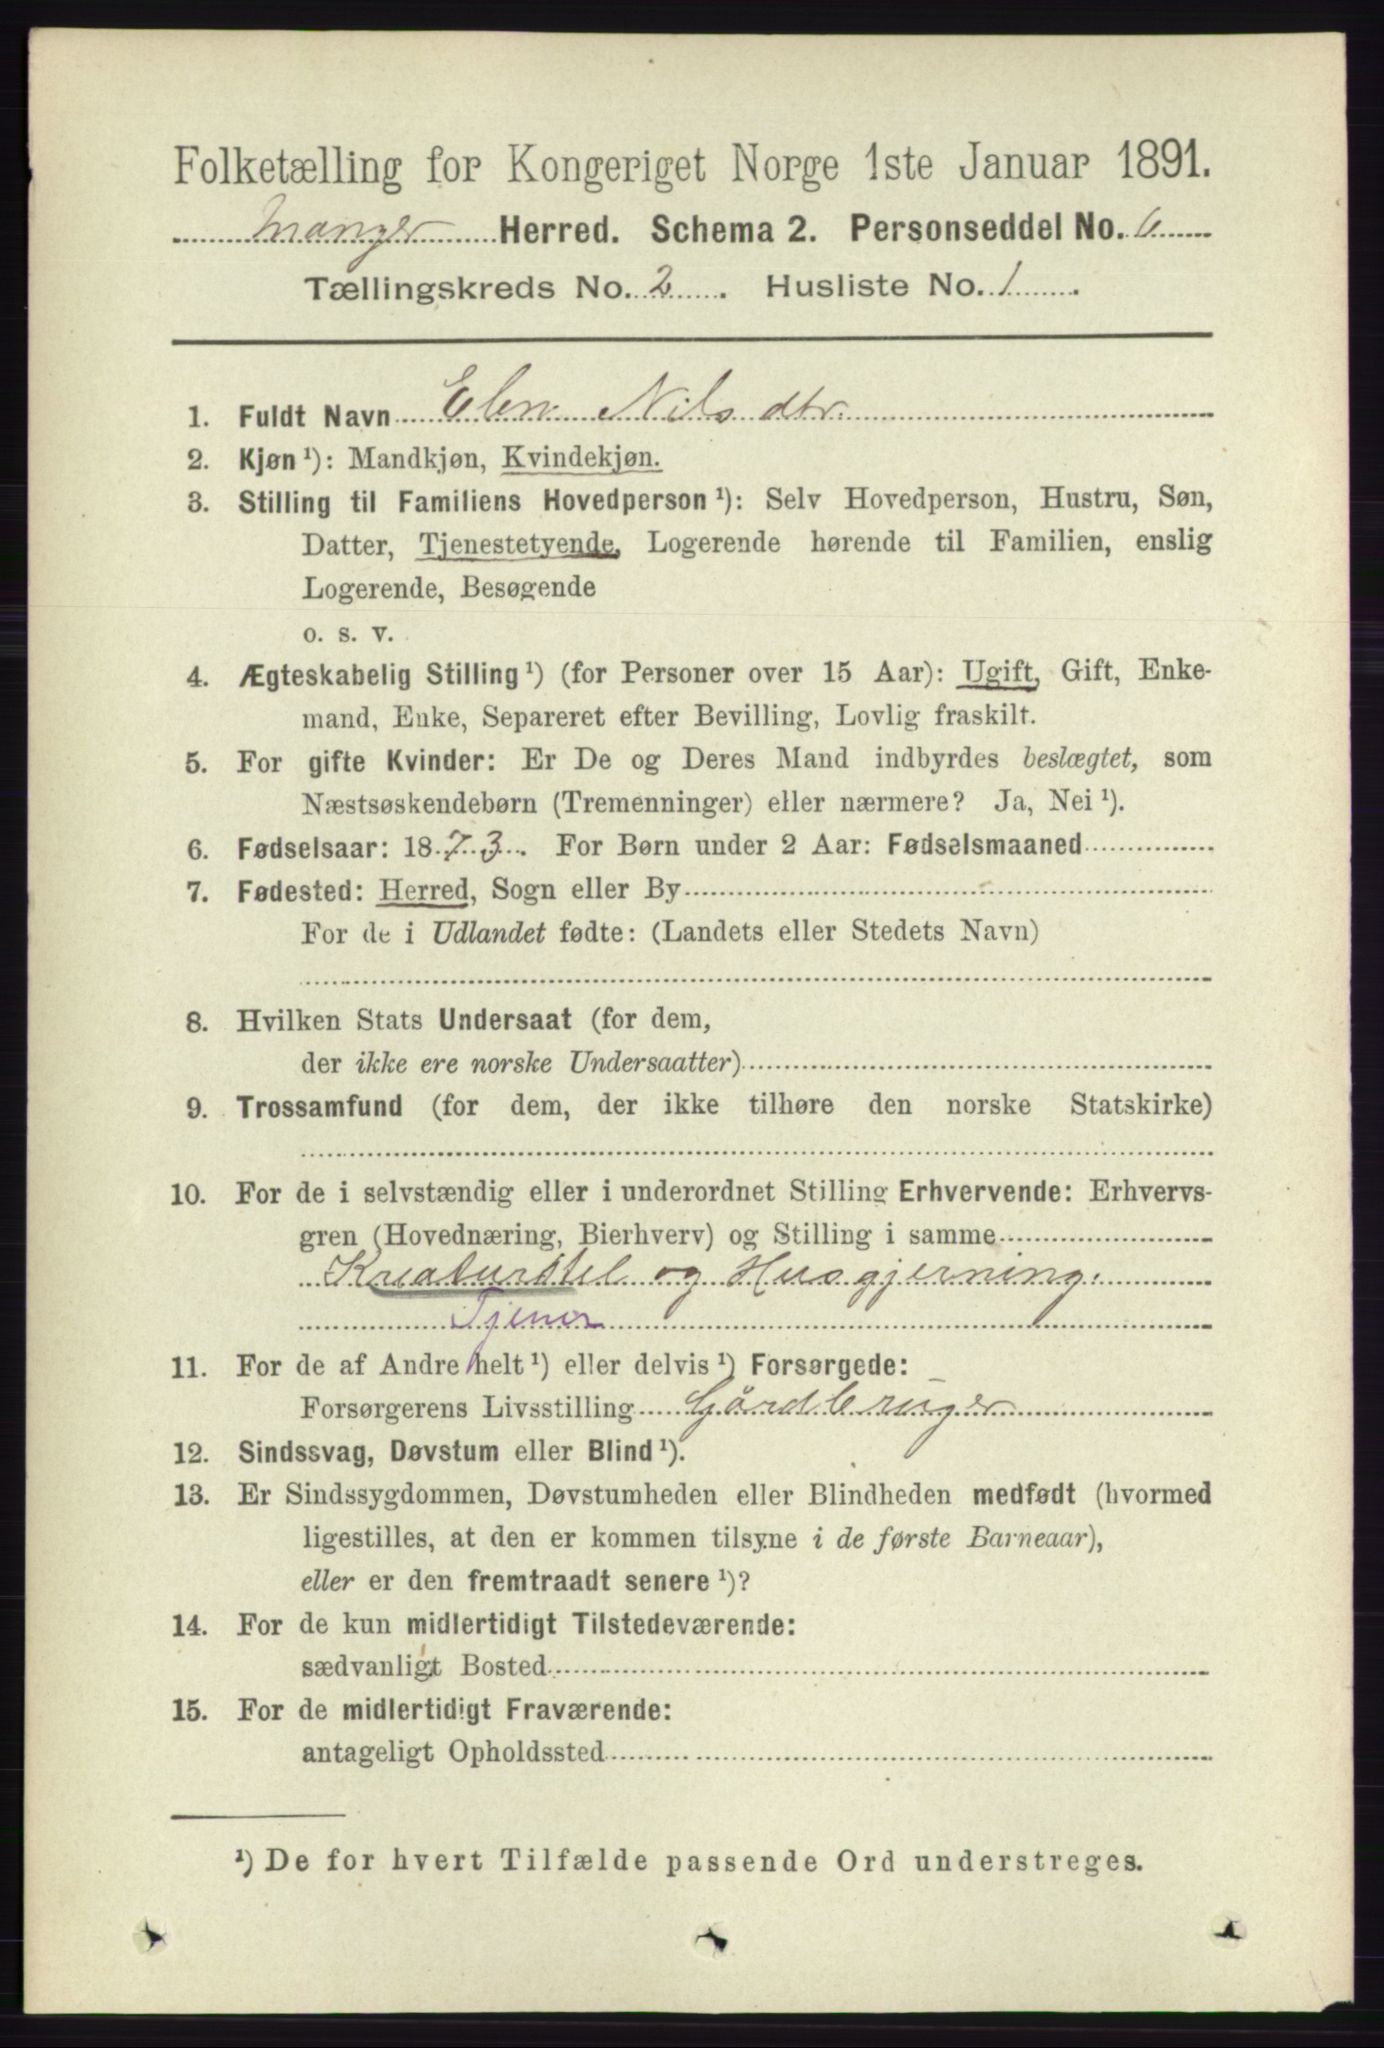 Folketælling for Kongeriget Norge 1ste Januar 1891.
Manger Herred. Schema 2. Personseddel No. 6
Tællingskreds No. 2. Husliste No. 1.
1. Fuldt Navn Elen Nilsdtr.
2. Kjøn ¹): Mandkjøn, Kvindekjøn.
3. Stilling til Familiens Hovedperson ¹): Selv Hovedperson, Hustru, Søn,
Datter, Tjenestetyende, Logerende hørende til Familien, enslig
Logerende, Besøgende
o. s. v.
4. Ægteskabelig Stilling ¹) (for Personer over 15 Aar): Ugift, Gift, Enke-
mand, Enke, Separeret efter Bevilling, Lovlig fraskilt.
5. For gifte Kvinder: Er De og Deres Mand indbyrdes beslægtet, som
Næstsøskendebørn (Tremenninger) eller nærmere? Ja, Nei ¹).
6. Fødselsaar: 1873. For Børn under 2 Aar: Fødselsmaaned
7. Fødested: Herred, Sogn eller By
For de i Udlandet fødte: (Landets eller Stedets Navn)
8. Hvilken Stats Undersaat (for dem,
der ikke ere norske Undersaatter)
9. Trossamfund (for dem, der ikke tilhøre den norske Statskirke)
10. For de i selvstændig eller i underordnet Stilling Erhvervende: Erhvervs-
gren (Hovednæring, Bierhverv) og Stilling i samme
Kreaturstel og Husgjerning.
Tjener
11. For de af Andre helt ¹) eller delvis ¹) Forsørgede:
Forsørgerens Livsstilling Gårdbruger
12. Sindssvag, Døvstum eller Blind ¹).
13. Er Sindssygdommen, Døvstumheden eller Blindheden medfødt (hvormed
ligestilles, at den er kommen tilsyne i de første Barneaar),
eller er den fremtraadt senere ¹)?
14. For de kun midlertidigt Tilstedeværende:
sædvanligt Bosted
15. For de midlertidigt Fraværende:
antageligt Opholdssted
¹) De for hvert Tilfælde passende Ord understreges.